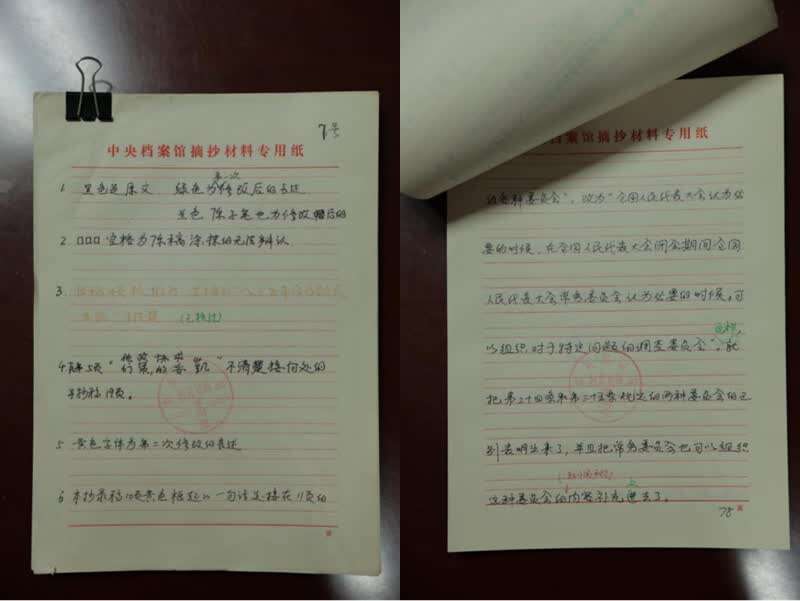 7号
中央档案馆摘抄材料专用纸
第一次
1. 黑色是原文 绿色为修改后的表述
黑色 陈手笔也为修改稿后的
2. □□□空格为陈稿涂抹的无法辨认
3.
(已核过)
4. 5页“ ”不清楚接何处的
手抄稿19页。
5 黄色字体为第二次修改的表述
6 本抄录稿10页黄色框起的一句话是接在11页的
档案馆摘抄材料专用纸
的各种委员会”，改为“全国人民代表大会认为必
要的时候，在全国人民代表大会闭会期间全国
人民代表大会常务委员会认为必要的时候，可
以组织对于特定问题的调查委员会”，就
把第二十四条和第二十五条规定的两种委员会的区
别表明出来了，并且把常务委员会也可以组织
这种委员会的内容补充进去了。
上
78